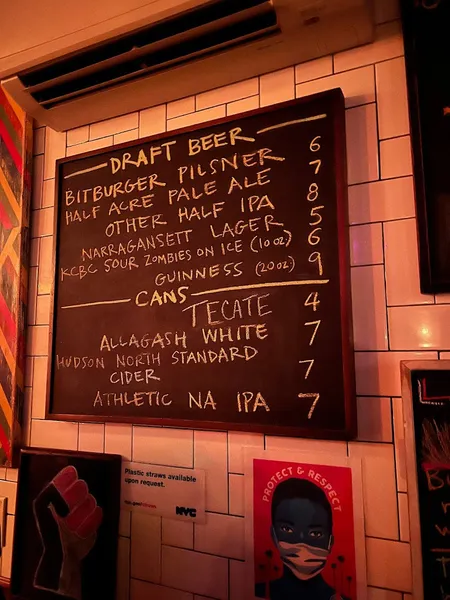 DRAFT BEER
BITBURGER PILSNER 6
HALF ACRE PALE ALE 7
OTHER HALF IPA 8
NARRAGANSETT LAGER 5
KCBC SOUR ZOMBIES ON ICE (10 oz) 6
GUINNESS (20 oz) 9
CANS
TECATE 4
ALLAGASH WHITE 7
HUDSON NORTH STANDARD
CIDER 7
ATHLETIC NA IPA 7
Plastic straws available
upon request.
NYC
PROTECT & RESPECT